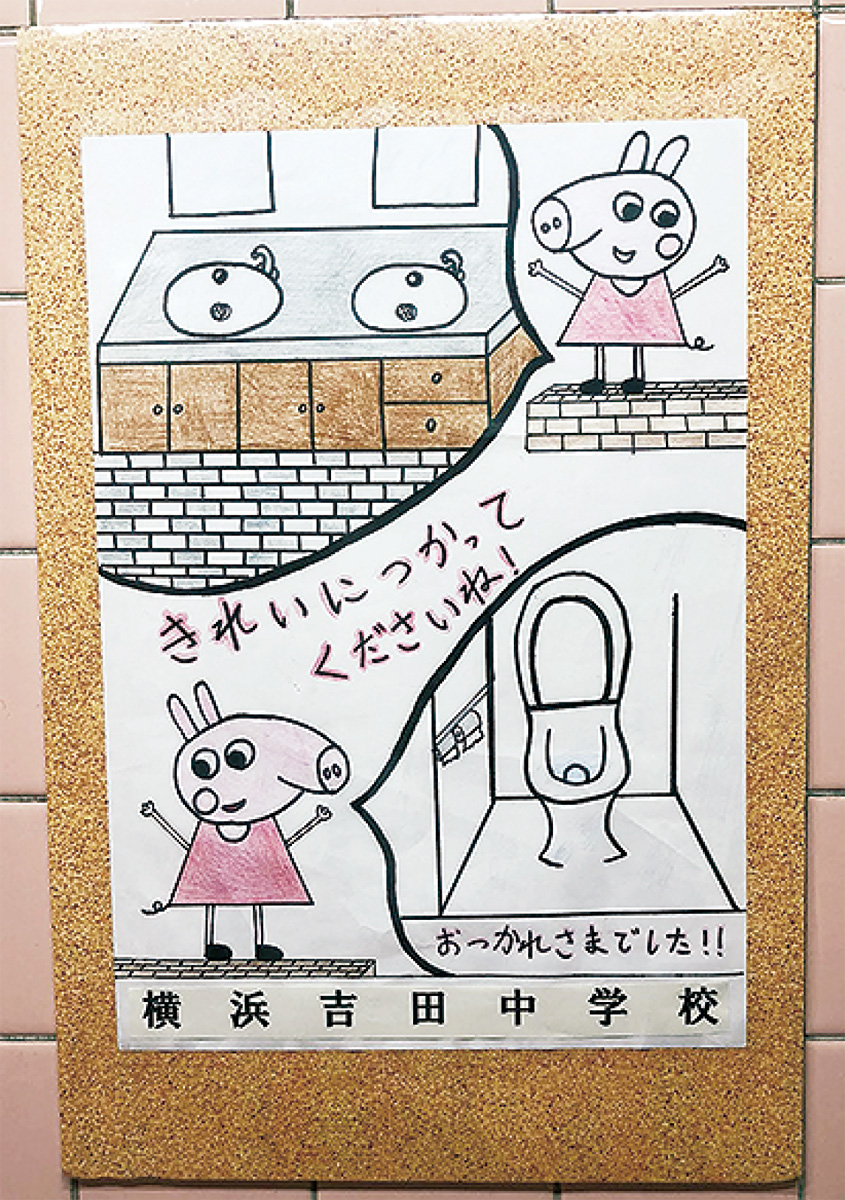 きれいにつかって
くださいね!
おつかれさまでした!!
横浜吉田中学校